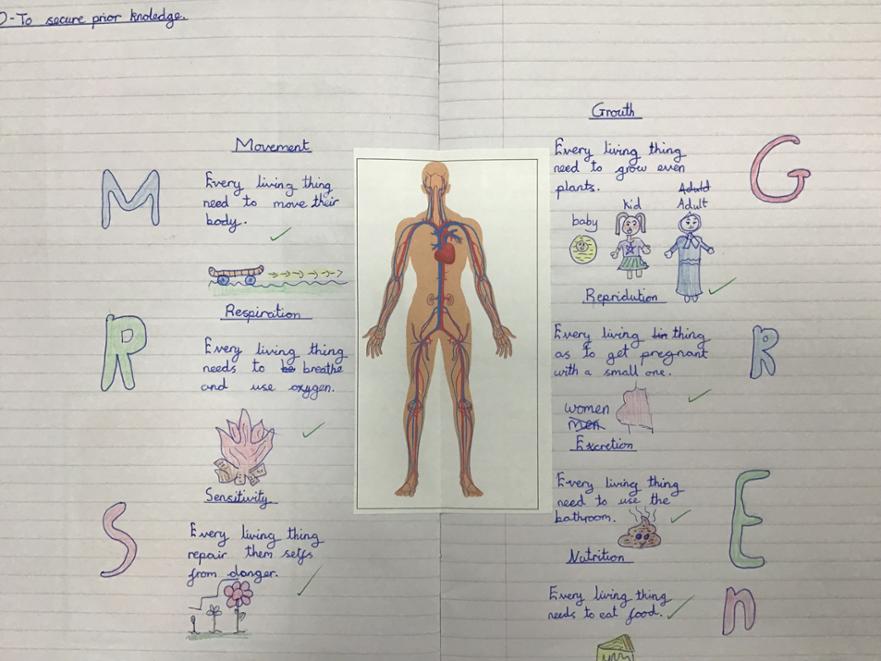 O-To secure prior knoledge.
M
Movement
Every living thing
need to move their
body.
R
Respiration
Every living thing
needs to be breathe
and use oxygen.
S
Sensitivity
Every living thing
repair them selfs
from danger.
Grouth
G
Every living thing
need to grow even
plants.
baby
Kid
Adult
Repridution
R
Every living thing
as to get pregnant
with a small one.
women
men
Excretion
E
Every living thing
need to use the
bathroom.
Nutrition
n
Every living thing
needs to eat food.